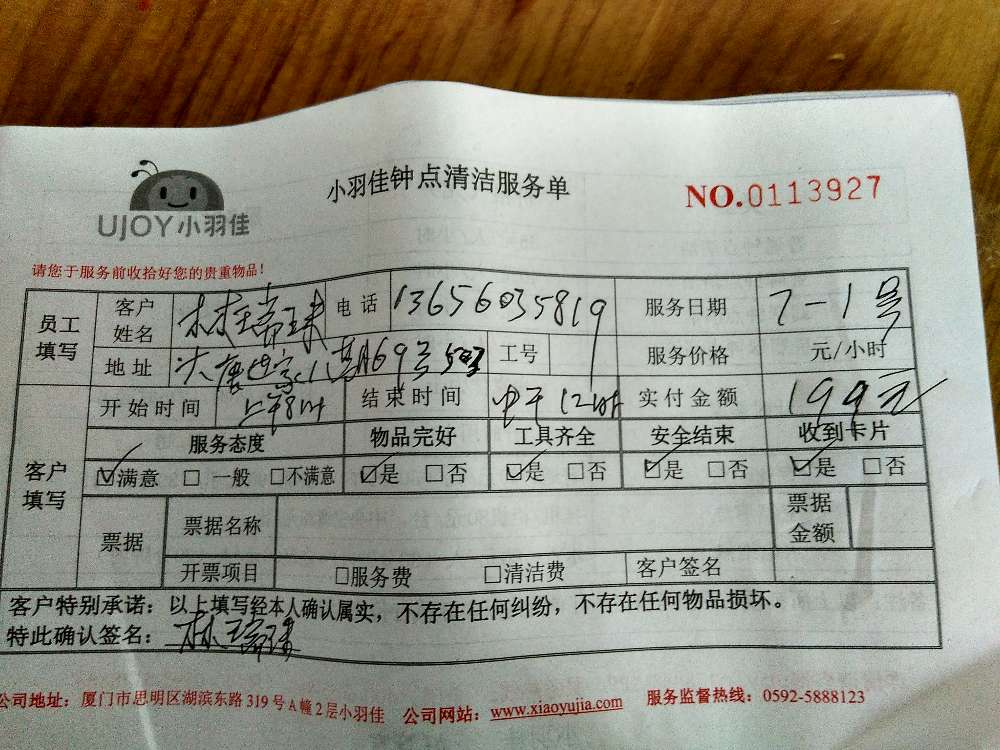 UJOY小羽佳
小羽佳钟点清洁服务单
NO.0113927
请您于服务前收拾好您的贵重物品!
员工填写 客户姓名 林瑞球 电话 13656035819 服务日期 7-1号
地址 大唐世家 69号503 工号 服务价格 元/小时
开始时间 上午8时 结束时间 中午12时 实付金额 199元
客户填写 服务态度 物品完好 工具齐全 安全结束 收到卡片
☑满意 □一般 □不满意 ☑是 □否 ☑是 □否 ☑是 □否 ☑是 □否
票据 票据名称 票据金额
开票项目 □服务费 □清洁费 客户签名
客户特别承诺：以上填写经本人确认属实，不存在任何纠纷，不存在任何物品损坏。
特此确认签名：林瑞球
公司地址：厦门市思明区湖滨东路319号A幢2层小羽佳 公司网站：www.xiaoyujia.com 服务监督热线：0592-5888123